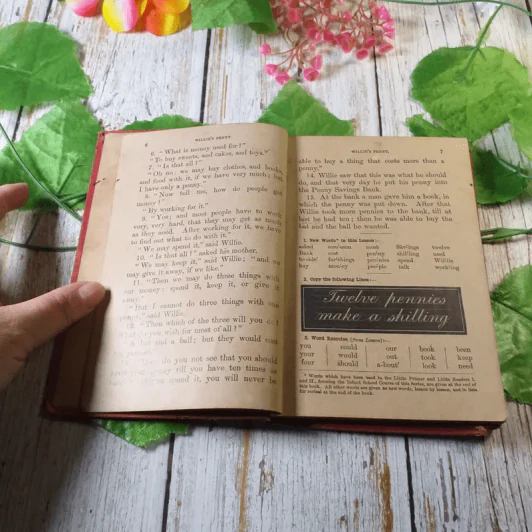 6 WILLIE'S PENNY.
6. "What is money used for?"
"To buy sweets, and cakes, and toys."
7. "Is that all?"
"Oh no; we may buy clothes, and books,
and food with it, if we have very much; but
I have only a penny."
8. "Now tell me, how do people get
money?"
"By working for it."
9. "Yes; and most people have to work
very, very hard, that they may get as much
as they need. After working for it, we have
to find out what to do with it."
"We may spend it," said Willie.
10. "Is that all?" asked his mother.
"We may keep it," said Willie; "and we
may give it away, if we like."
11. "Then we may do three things with
our money: spend it, keep it, or give it
away."
"But I cannot do three things with one
penny," said Willie.
12. "Then which of the three will you do?
What do you wish for most of all?"
a bat and a ball; but they would cost
do you not see that you should
till you have ten times as
spend it, you will never be
WILLIE'S PENNY. 7
able to buy a thing that costs more than a
penny."
14. Willie saw that this was what he should
do, and that very day he put his penny into
the Penny Savings Bank.
15. At the bank a man gave him a book, in
which the penny was put down. After that
Willie took more pennies to the bank, till at
last he had ten; then he was able to buy the
bat and the ball he wanted.
1. New Words* in this Lesson:—
asked costs most Savings twelve
Bank cost pen'ny shil'ling used
be-side' far'things pennies spend Willie
buy mon'ey people talk work'ing
2. Copy the following Lines:—
Twelve pennies
make a shilling
3. Word Exercise (from Lesson):—
you could our book been
your would out took keep
four should a-bout' look need
* Words which have been used in the Little Primer and Little Readers I.
and II., forming the Infant School Course of this Series, are given at the end of
this book. All other words are given as new words, lesson by lesson, and in lists
for revisal at the end of the book.